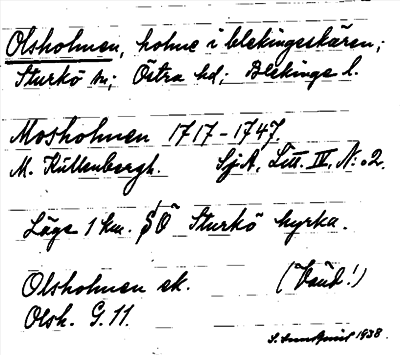 Olsholmen, holme i blekingeskären;
Sturkö sn; Östra hd; Blekinge l.
Mosholmen 1717-1747.
M. Kullenbergh. SjA, Litt. IV, N:o 2.
Läge 1 km. SÖ Sturkö kyrka.
Olsholmen ek. (Vaud!)
Olsh. G. 11.
1938.